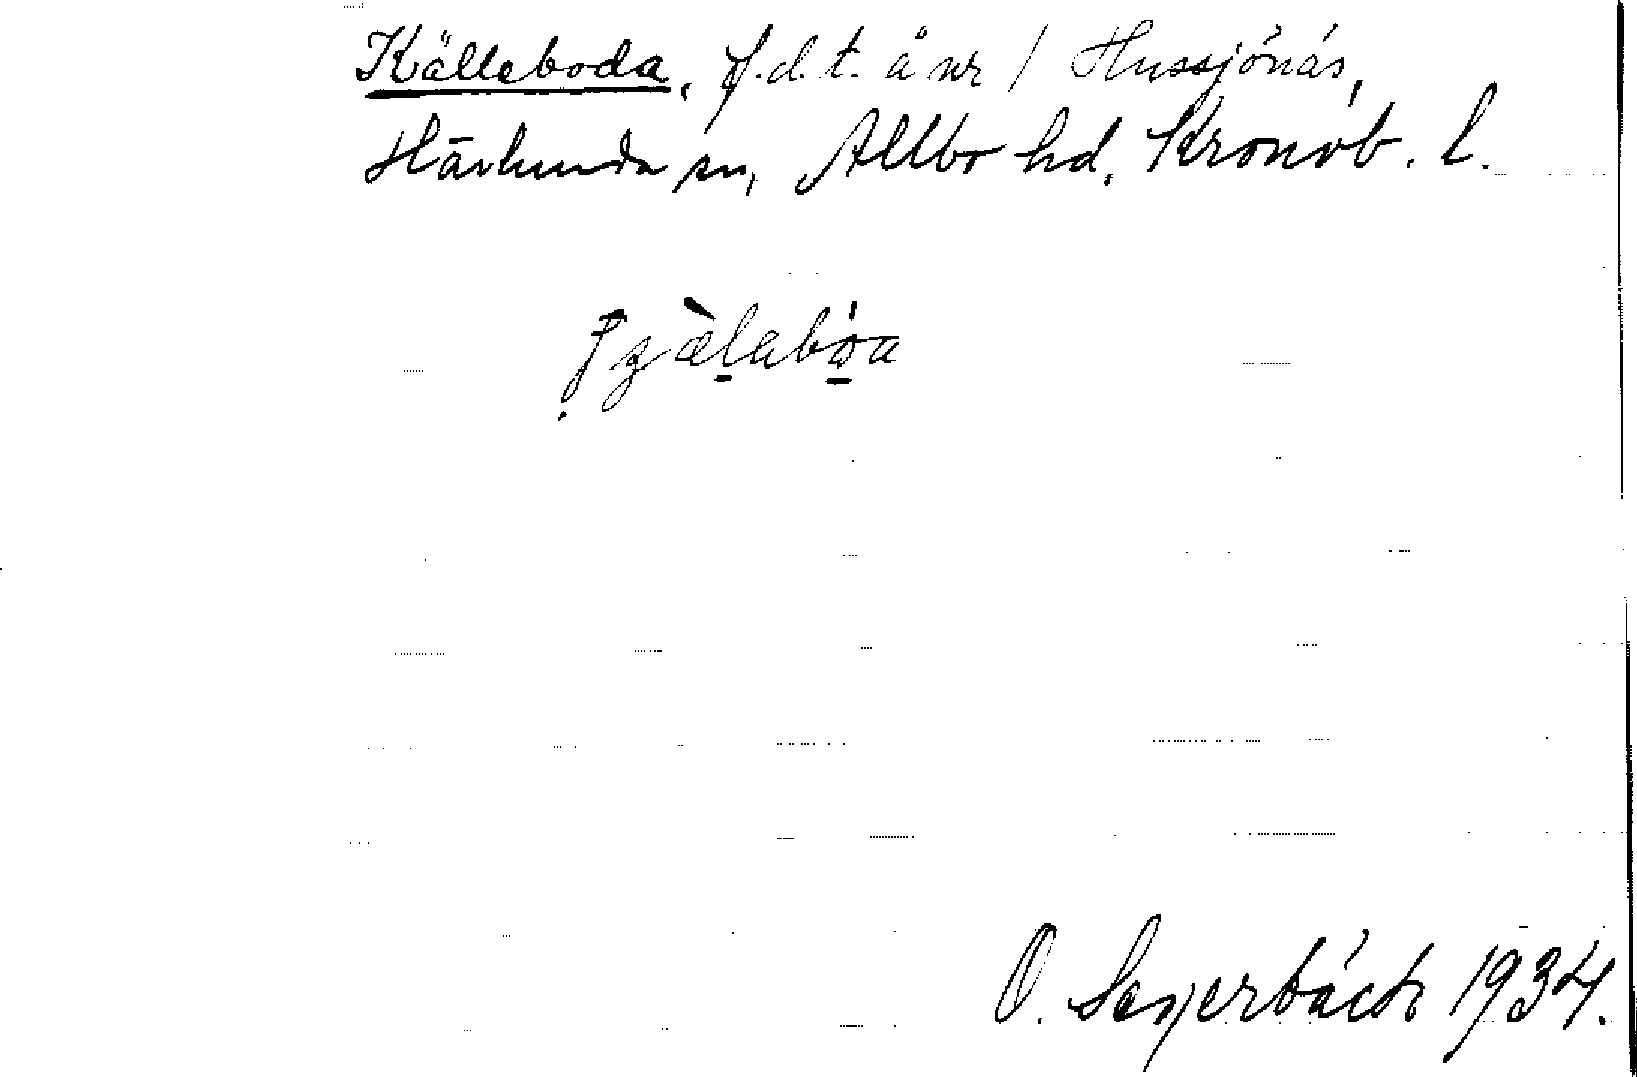 Källeboda, f.d.t. å nr 1 Hussjönäs,
Härlunda sn, Allbo hd. Kronob. l.
O. Lagerbäck 1934.